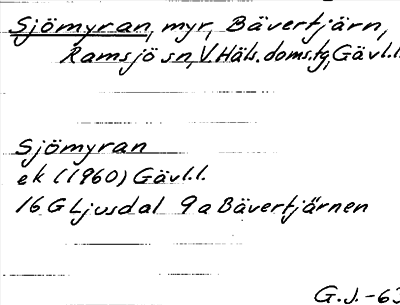 Sjömyran, myr, Bävertjärn,
Ramsjö sn, V. Häls. doms.tg, Gävl.l.
Sjömyran
ek (1960) Gävl.l.
16 G Ljusdal 9a Bävertjärnen
G.J. -63